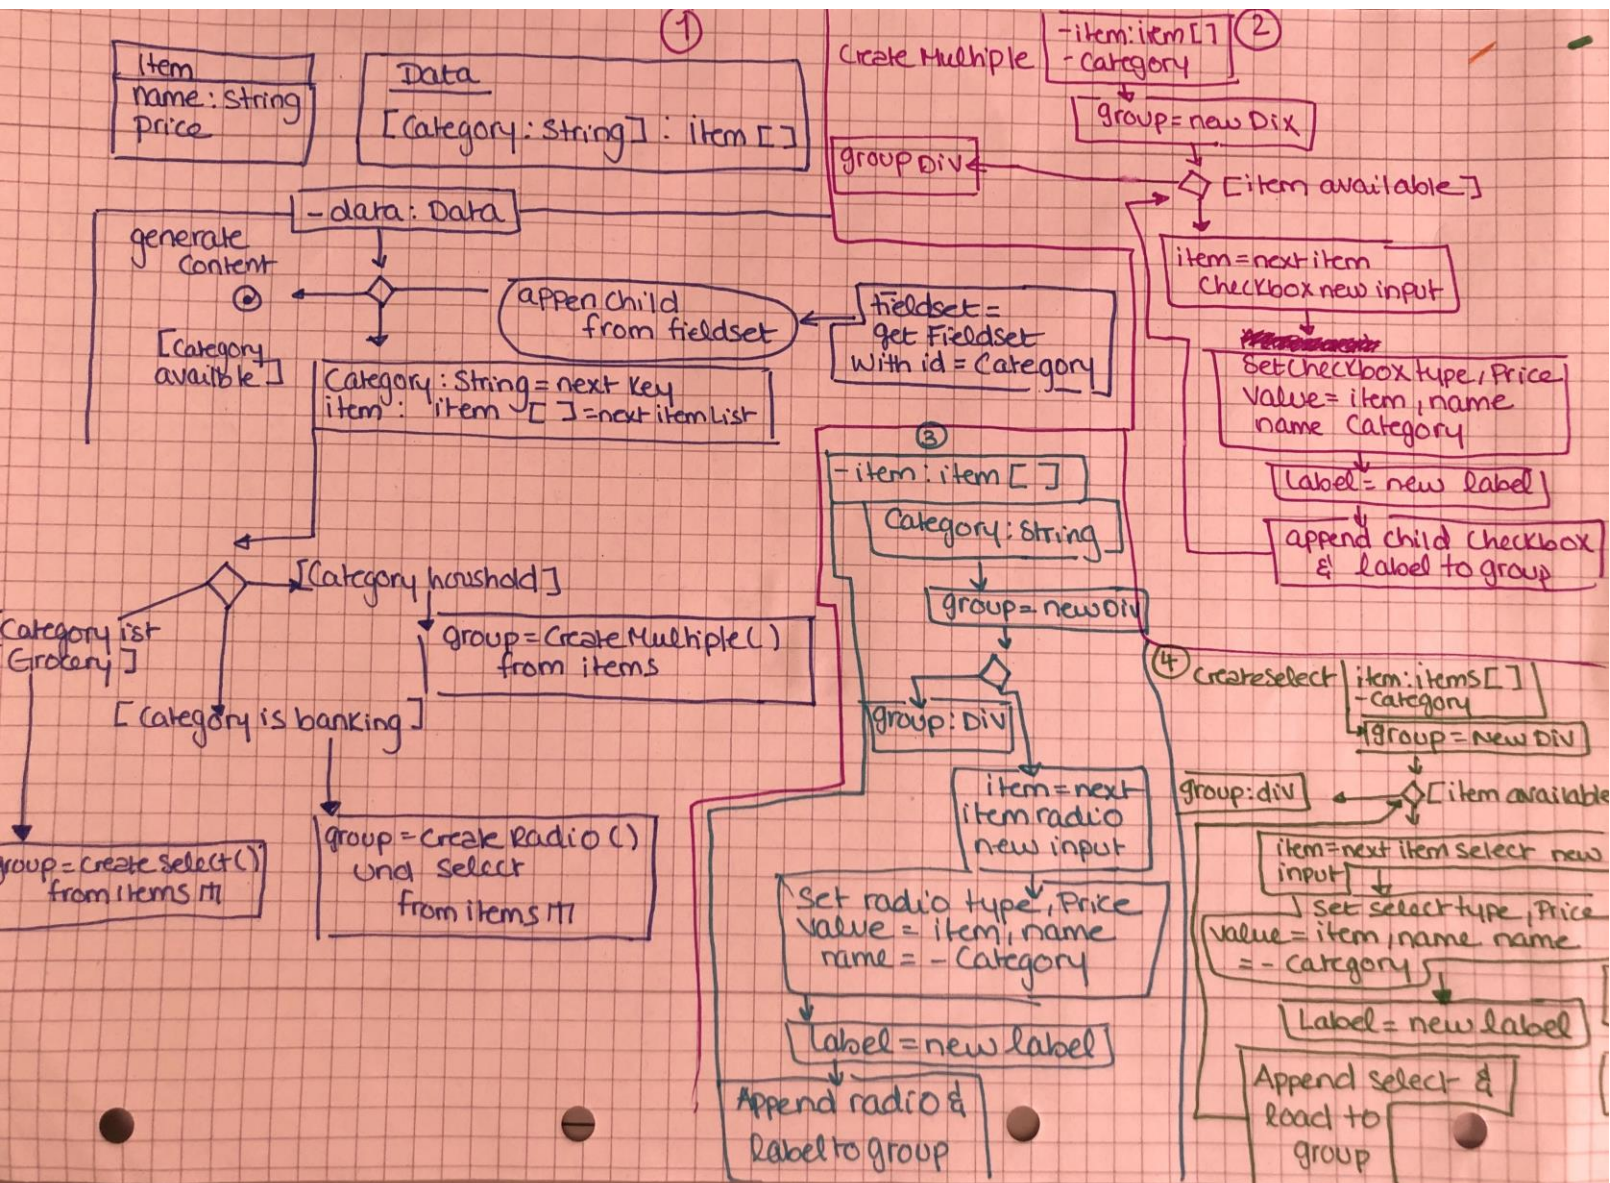 1
Item
name: String
price
Data
[Category: String] : item []
- data: Data
generate
Content
[Category
availble]
appenchild
from fieldset
fieldset =
get Fieldset
with id = Category
Category: String = next Key
item : item [ ] = next item List
[Category houshold]
group = Create Multiple()
from items
Category ist
Grocery]
[Category is banking]
group = Create Select()
from items
group = Create Radio()
und select
from items
2
Create Multiple
- item: item []
- Category
group = new Dix
group Div
[item available]
item = next item
Checkbox new input
Set Checkbox type, Price
Value = item, name
name Category
Label = new label
append child Checkbox
& label to group
3
- item: item [ ]
Category: String
group = new Div
group: Div
item = next
item radio
new input
Set radio type, Price
value = item, name
name = - Category
Label = new label
Append radio &
label to group
4
Create select
item: items []
- Category
group = New Div
group: div
[item available
item = next item select new
input
set select type, Price
value = item, name name
= - category
Label = new label
Append select &
load to
group